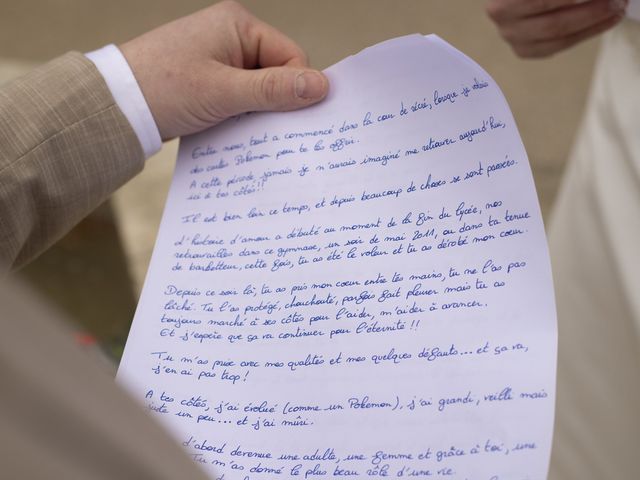 Entre nous, tout a commencé dans la cour de récré, lorsque je volais
des cartes Pokemon pour te les offrir.
A cette période, jamais je n'aurais imaginé me retrouver aujourd'hui,
ici à tes côtés!!
Il est bien loin ce temps, et depuis beaucoup de choses se sont passées.
d'histoire d'amour a débuté au moment de la fin du lycée, nos
retrouvailles dans ce gymnase, un soir de mai 2011, ou dans ta tenue
de basketteur, cette fois, tu as été le voleur et tu as dérobé mon cœur.
Depuis ce soir là, tu as pris mon cœur entre tes mains, tu ne l'as pas
lâché. Tu l'as protégé, chouchouté, parfois fait pleurer mais tu as
toujours marché à ses côtés pour l'aider, m'aider à avancer.
Et j'espère que ça va continuer pour l'éternité !!
Tu m'as prise avec mes qualités et mes quelques défauts... et ça va,
j'en ai pas trop!
A tes côtés, j'ai évolué (comme un Pokemon), j'ai grandi, vieilli mais
juste un peu... et j'ai mûri.
d'abord devenue une adulte, une femme et grâce à toi, une
Tu m'as donné le plus beau rôle d'une vie.